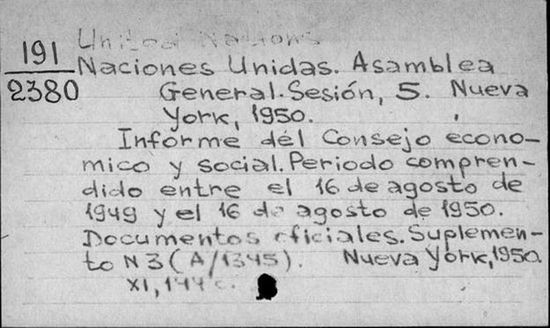 United Nations
191
2380
Naciones Unidas. Asamblea
General. Sesión, 5. Nueva
York, 1950.
Informe del Consejo econo-
mico y social. Periodo compren-
dido entre el 16 de agosto de
1949 y el 16 de agosto de 1950.
Documentos oficiales. Suplemen-
to N 3 (A/1345). Nueva York, 1950.
XI, 144 c.